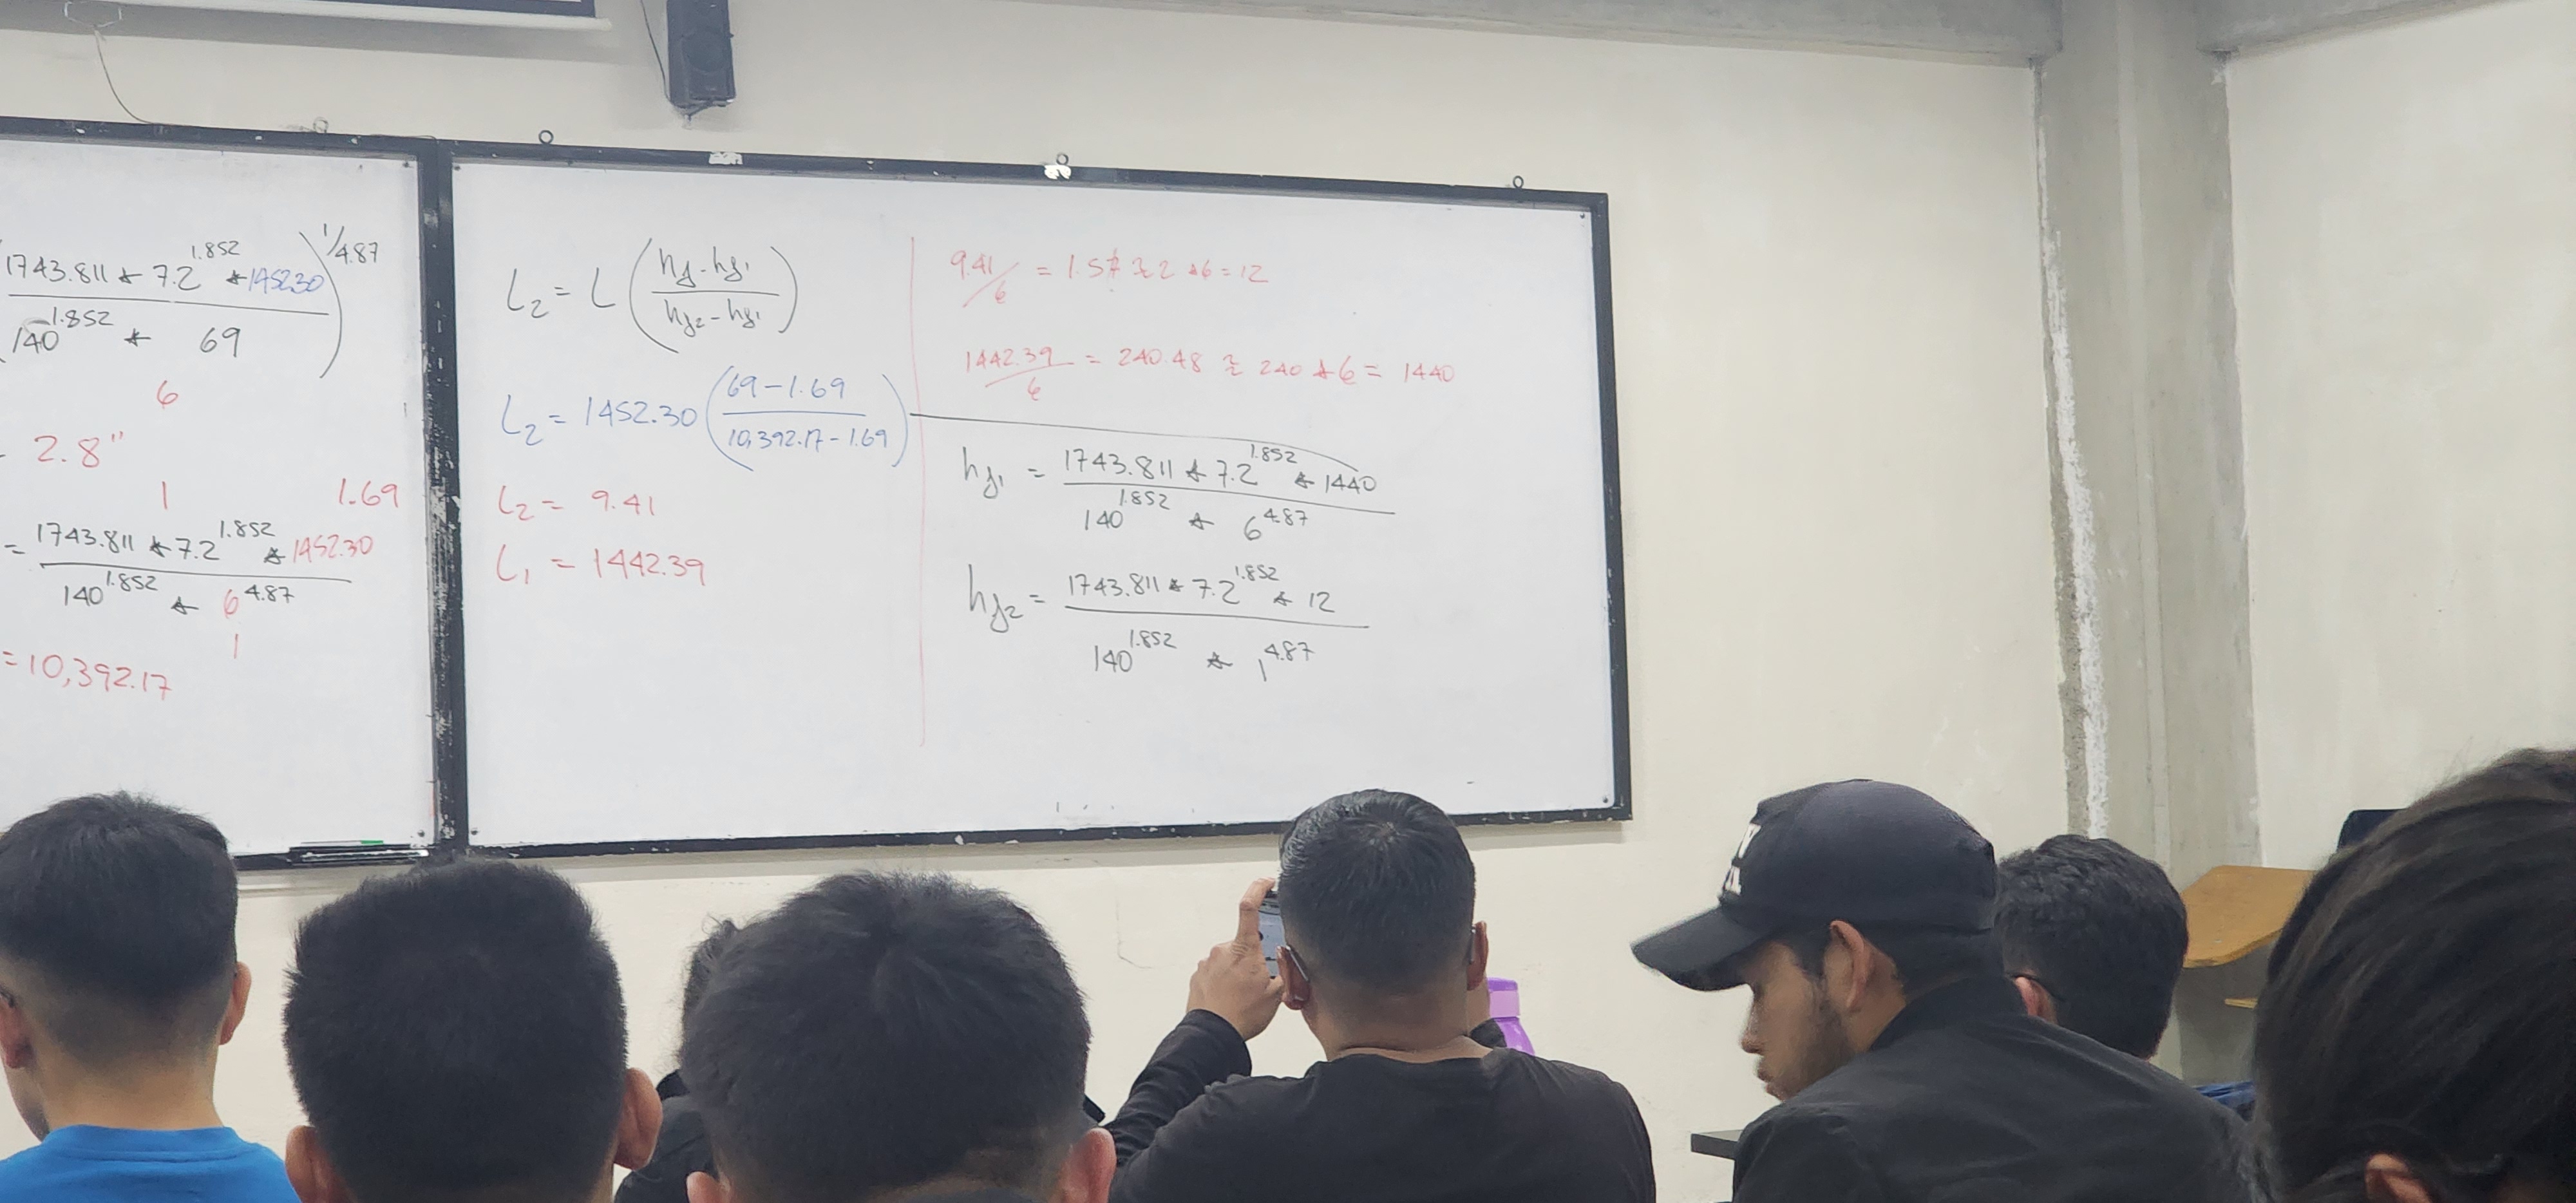 (1743.811 * 7.2^1.852 * 1452.30)^1/4.87
140^1.852 * 69
6
2.8"
1 1.69
= 1743.811 * 7.2^1.852 * 1452.30
140^1.852 * 6^4.87
1
= 10,392.17
L2 = L (hf - hf1)
(hf2 - hf1)
L2 = 1452.30 (69 - 1.69)
(10,392.17 - 1.69)
L2 = 9.41
L1 = 1442.39
9.41/6 = 1.57 ≈ 2 *6 = 12
1442.39/6 = 240.48 ≈ 240 * 6 = 1440
hf1 = 1743.811 * 7.2^1.852 * 1440
140^1.852 * 6^4.87
hf2 = 1743.811 * 7.2^1.852 * 12
140^1.852 * 1^4.87